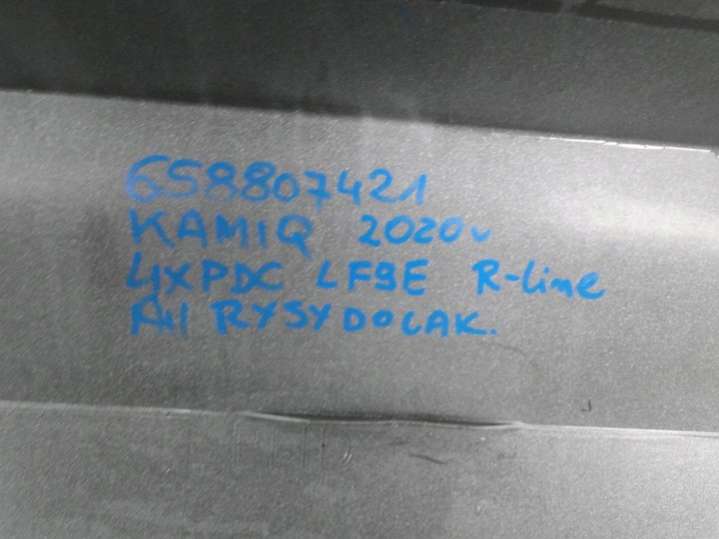 658807421
KAMIQ 2020r
4XPDC LF9E R-line
RYSY DO LAK.